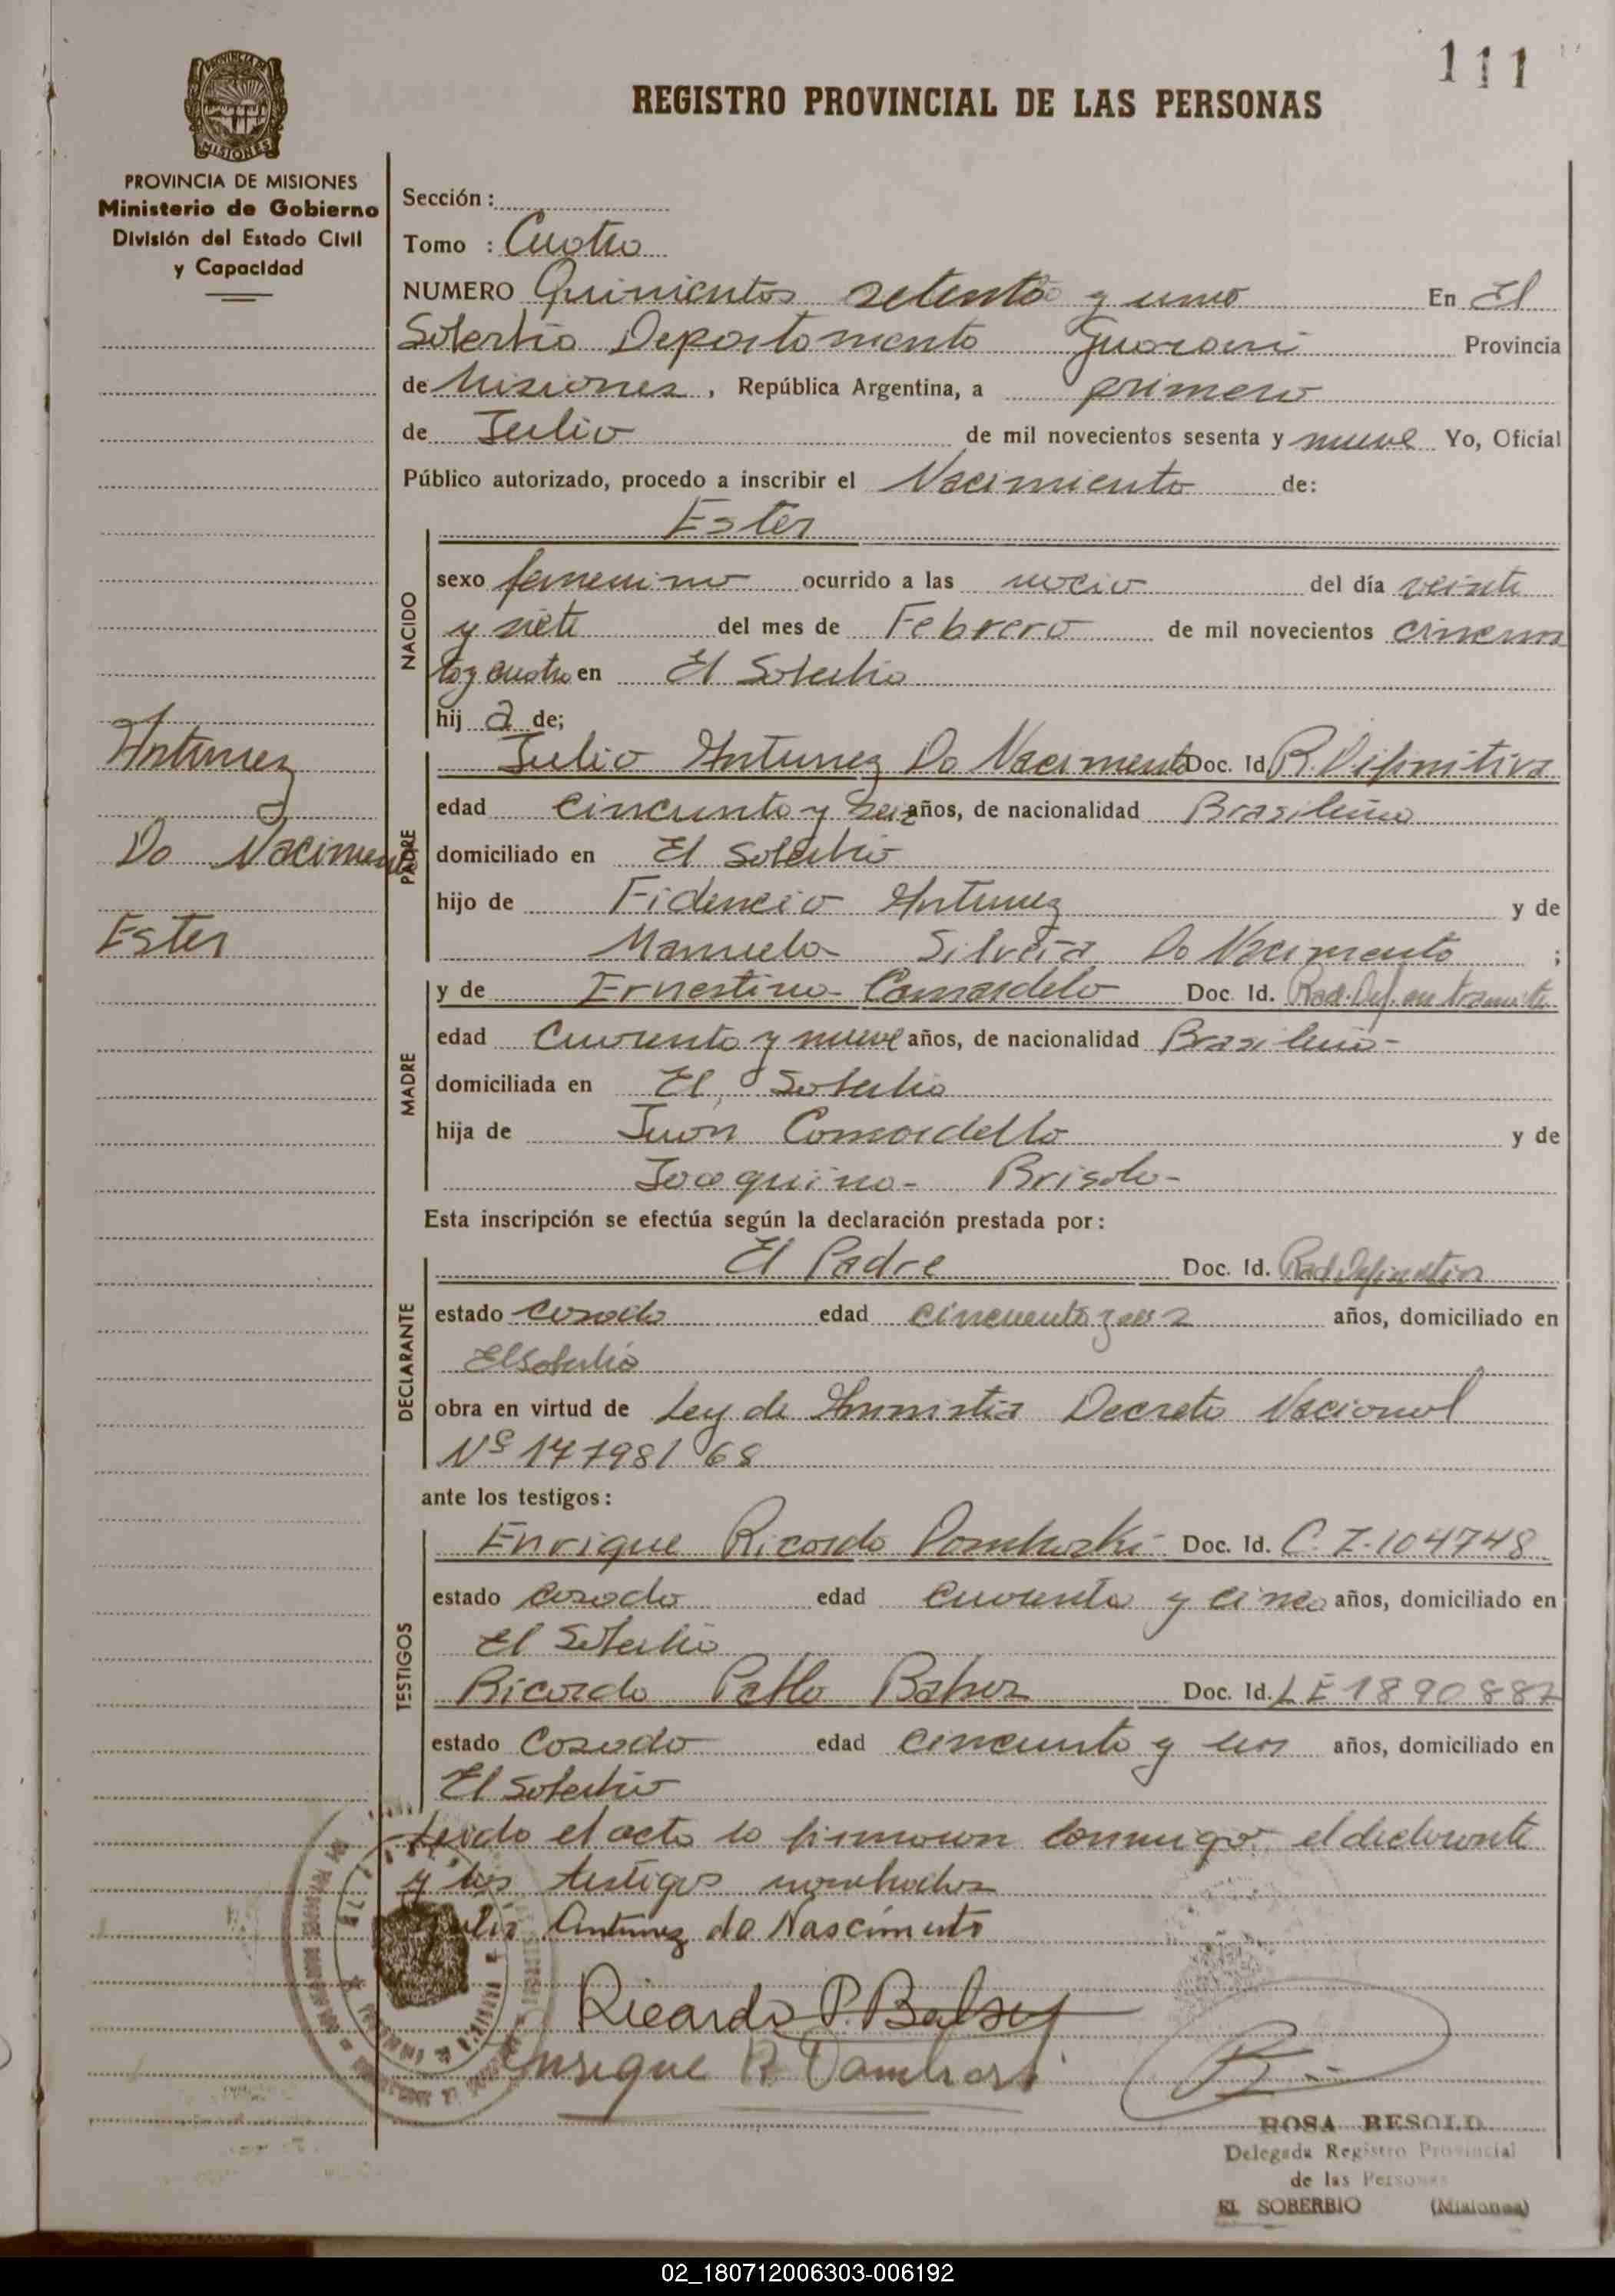 111
PROVINCIA DE
MISIONES
REGISTRO PROVINCIAL DE LAS PERSONAS
PROVINCIA DE MISIONES
Ministerio de Gobierno
División del Estado Civil
y Capacidad
Sección :
Tomo : Cuatro
NUMERO Quinientos setenta y uno En El
Soberbio Departamento Guarani Provincia
de Misiones, República Argentina, a primero
de Julio de mil novecientos sesenta y nueve Yo, Oficial
Público autorizado, procedo a inscribir el Nacimiento de:
Ester
NACIDO
sexo femenino ocurrido a las del día veinte
y siete del mes de Febrero de mil novecientos cincuen
ta y cuatro en El Soberbio
hij a de;
Antunez
Do Nacimento
Ester
PADRE
Julio Antunez Do Nacimento Doc. Id. R. Difinitiva
edad cincuenta y seis años, de nacionalidad Brasileña
domiciliado en El Soberbio
hijo de Fidencio Antunez y de
Manuela Silveia Do Nacimento ;
MADRE
y de Ernestina Camardelo Doc. Id. Rad. Def. en tramite
edad Cuarenta y nueve años, de nacionalidad Brasileña-
domiciliada en El Soberbio
hija de Juan Comardello y de
Joaquina- Brisola-
Esta inscripción se efectúa según la declaración prestada por:
DECLARANTE
El Padre Doc. Id. Rad Definitiva
estado casado edad cincuenta y seis años, domiciliado en
El Soberbio
obra en virtud de Ley de Amnistia Decreto Nacional
Nº 17798/68
ante los testigos:
TESTIGOS
Enrique Ricardo Doc. Id. C. I. 104748
estado casado edad cuarenta y cinco años, domiciliado en
El Soberbio
Ricardo Pablo Doc. Id. L E 1890887
estado Casado edad cincuenta y años, domiciliado en
El Soberbio
Leido el acta lo firmaron conmigo el declarante
y los testigos nombrados
Julio Antunez do Nascimento
Ricardo P. Balsey
Enrique R.
ROSA BESOLD
Delegada Registro Provincial
de las Personas
EL SOBERBIO (Misiones)
02_180712006303-006192